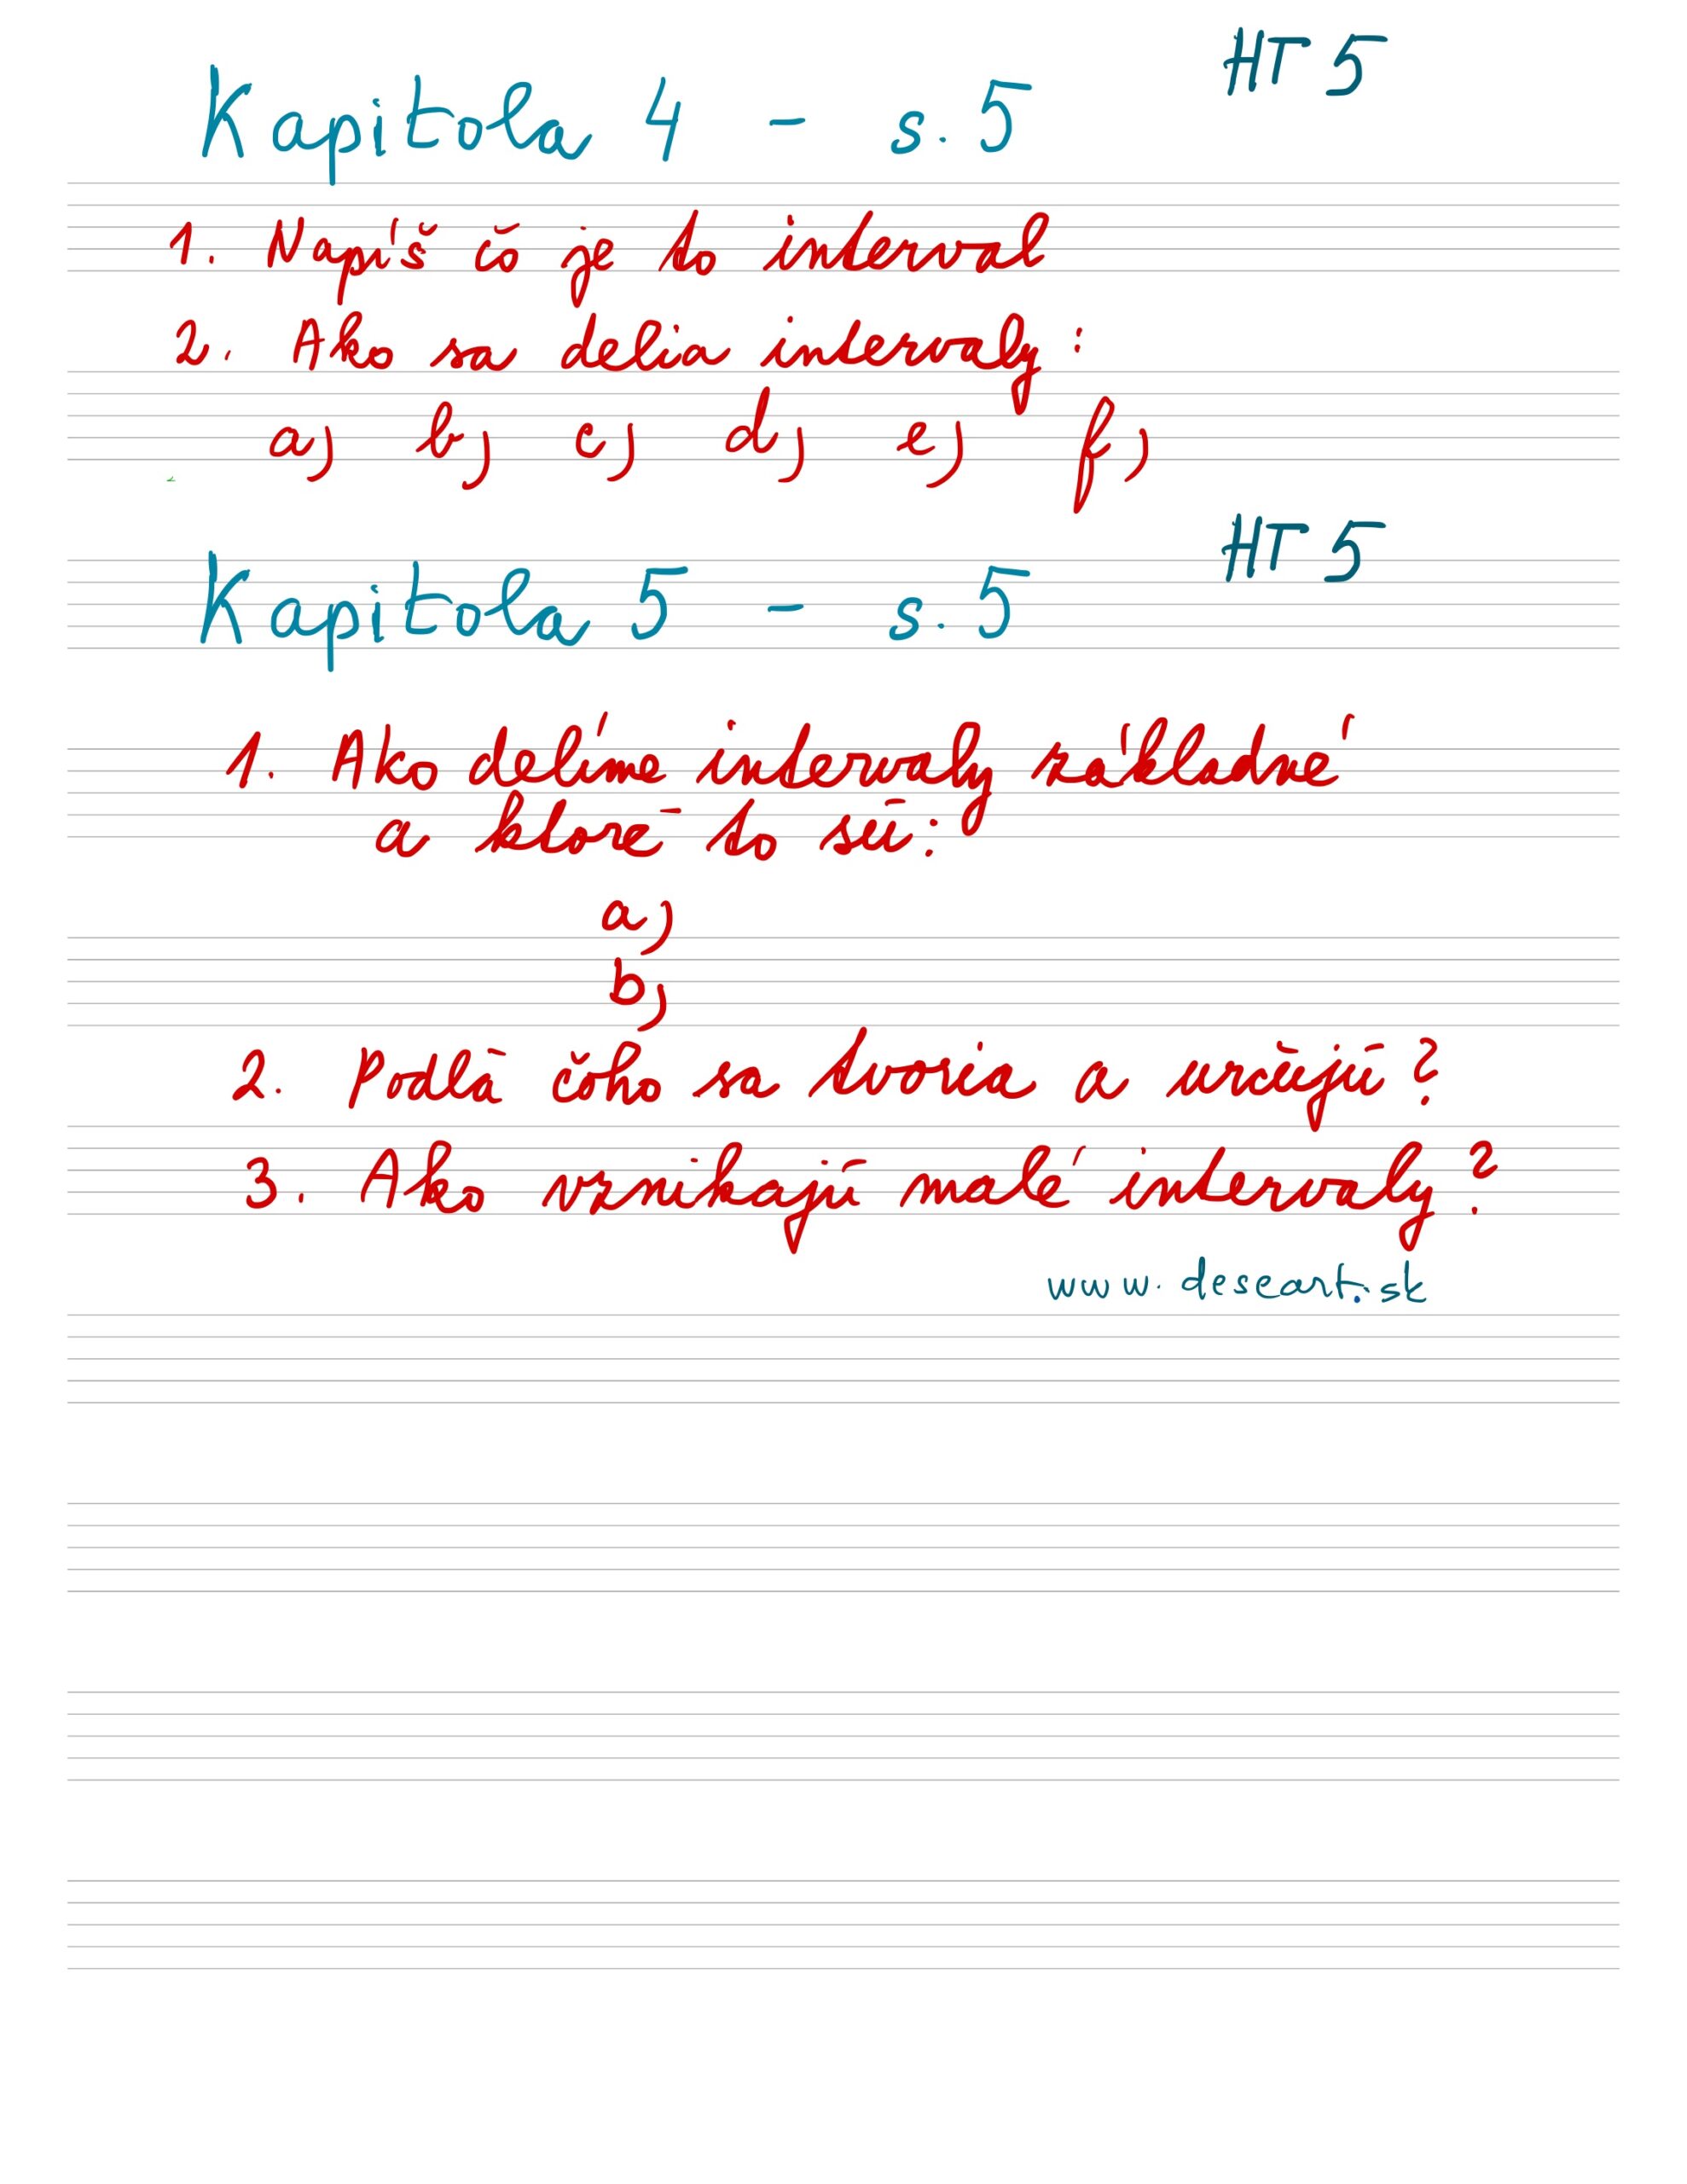 HT 5
Kapitola 4 - s. 5
1. Napíš čo je to interval
2. Ako sa delia intervaly:
a) b) c) d) e) f)
HT 5
Kapitola 5 - s. 5
1. Ako delíme intervaly základné
a ktoré to sú:
a)
b)
2. Podlá čoho sa tvoria a určujú?
3. Ako vznikajú malé intervaly?
www.deseart.sk